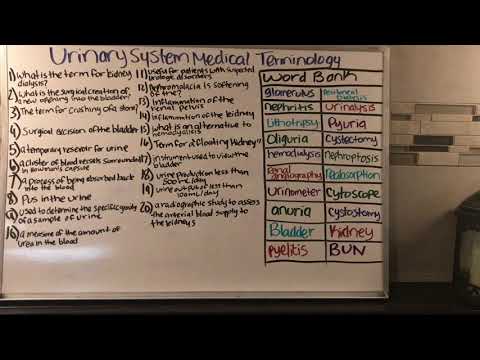 Urinary System Medical Terminology
1) What is the term for kidney
dialysis?
2) What is the surgical creation of
a new opening into the bladder?
3) The term for crushing of a stone?
4) Surgical excision of the bladder
5) a temporary resevoir for urine
6) a cluster of blood vessels surrounded
in Bowman's capsule
7) A process of being absorbed back
into the blood
8) Pus in the urine
9) used to determine the specific gravity
of a sample of urine
10) a measure of the amount of
urea in the blood
11) useful for patients with suspected
urologic disorders
12) Nephromalacia is softening
of the?
13) Inflammation of the
renal pelvis
14) Inflammation of the kidney
15) What is an alternative to
hemodialysis
16) Term for "a floating kidney"
17) instrument used to view the
bladder
18) Urine production less than
500ml/day
19) urine output of less than
100mL/day
20) a radiographic study to assess
the arterial blood supply to
the kidneys
Word Bank
glomerulus
Peritoneal
Dialysis
nephritis
Urinalysis
Lithotripsy
Pyuria
Oliguria
Cystectomy
hemodialysis
nephroptosis
renal
angiography
reabsorption
Urinometer
Cytoscope
anuria
Cystostomy
Bladder
Kidney
Pyelitis
BUN